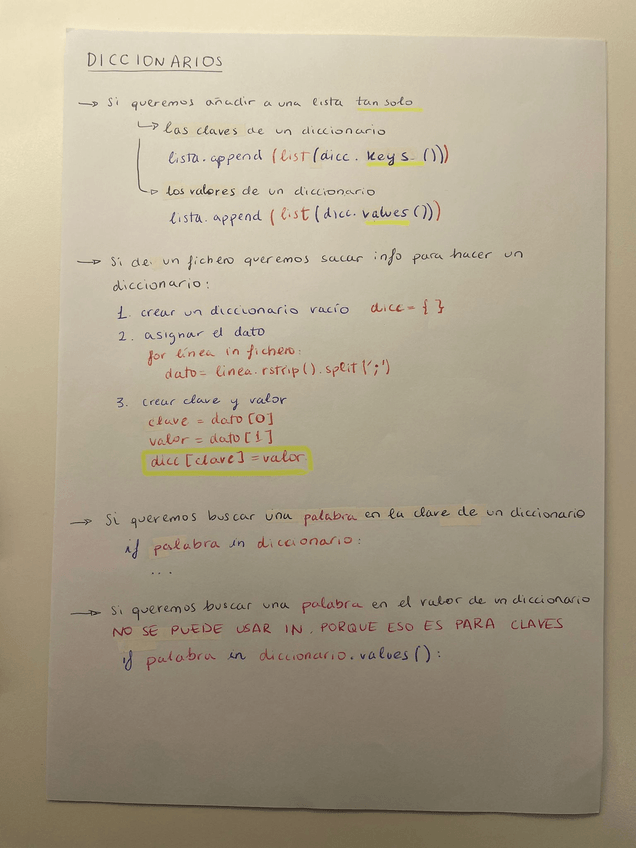 DICCIONARIOS
→ Si queremos añadir a una lista tan solo
↳ las claves de un diccionario
lista.append (list(dicc. keys ()))
↳ los valores de un diccionario
lista.append (list(dicc. values()))
→ Si de un fichero queremos sacar info para hacer un
diccionario:
1. crear un diccionario vacío dicc = { }
2. asignar el dato
for línea in fichero:
dato = linea.rstrip().split(';')
3. crear clave y valor
clave = dato [0]
valor = dato [1]
dicc [clave] = valor
→ Si queremos buscar una palabra en la clave de un diccionario
if palabra in diccionario:
...
→ Si queremos buscar una palabra en el valor de un diccionario
NO SE PUEDE USAR IN. PORQUE ESO ES PARA CLAVES
if palabra in diccionario.values():